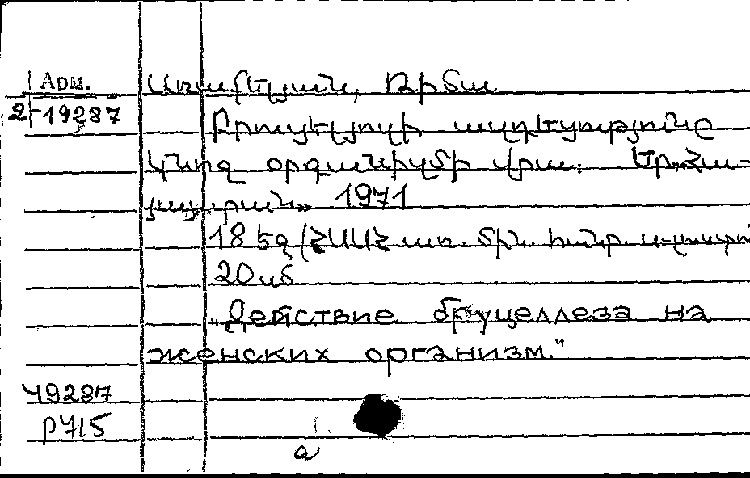 Арм.
2-19287
Առաքելյան, Ռիտա
Բրուցելյոզի ազդեցությունը
կնոջ օրգանիզմի վրա. Եր. «Հա-
յաստան» 1971
18 էջ (ՀՍՍՀ առ. մին.
20սմ
"Действие бруцеллеза на
женских организм."
49287
P715
a